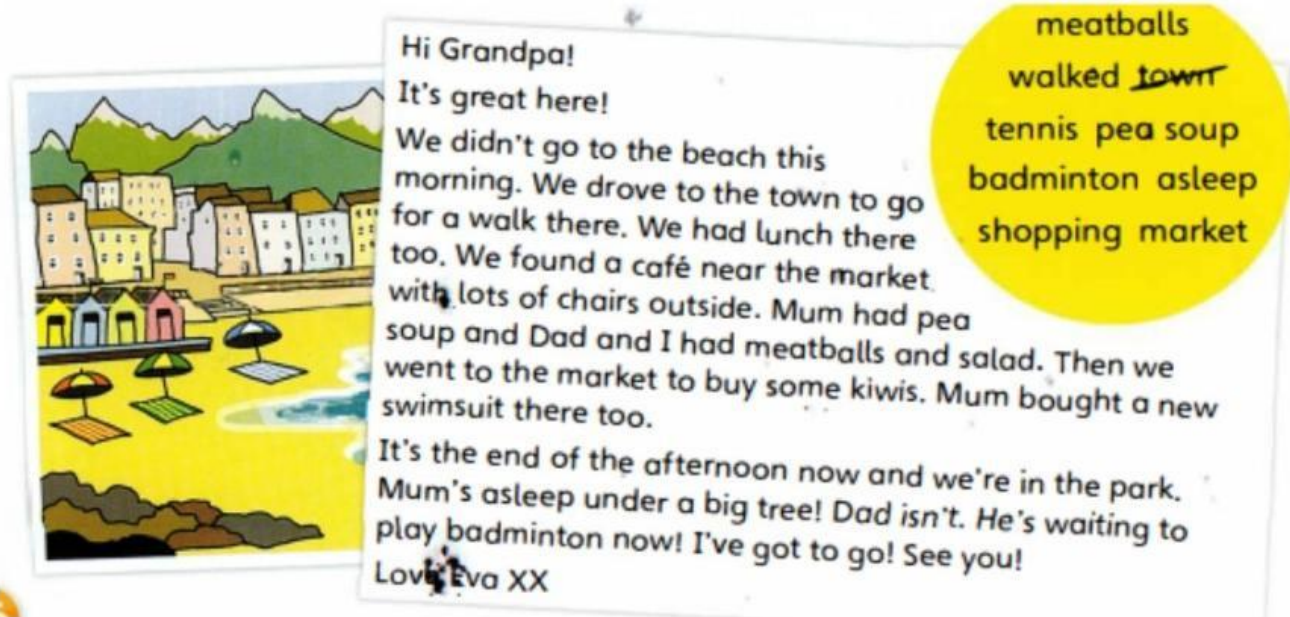 Hi Grandpa!
It's great here!
We didn't go to the beach this
morning. We drove to the town to go
for a walk there. We had lunch there
too. We found a café near the market
with lots of chairs outside. Mum had pea
soup and Dad and I had meatballs and salad. Then we
went to the market to buy some kiwis. Mum bought a new
swimsuit there too.
It's the end of the afternoon now and we're in the park.
Mum's asleep under a big tree! Dad isn't. He's waiting to
play badminton now! I've got to go! See you!
Love Eva XX
meatballs
walked town
tennis pea soup
badminton asleep
shopping market